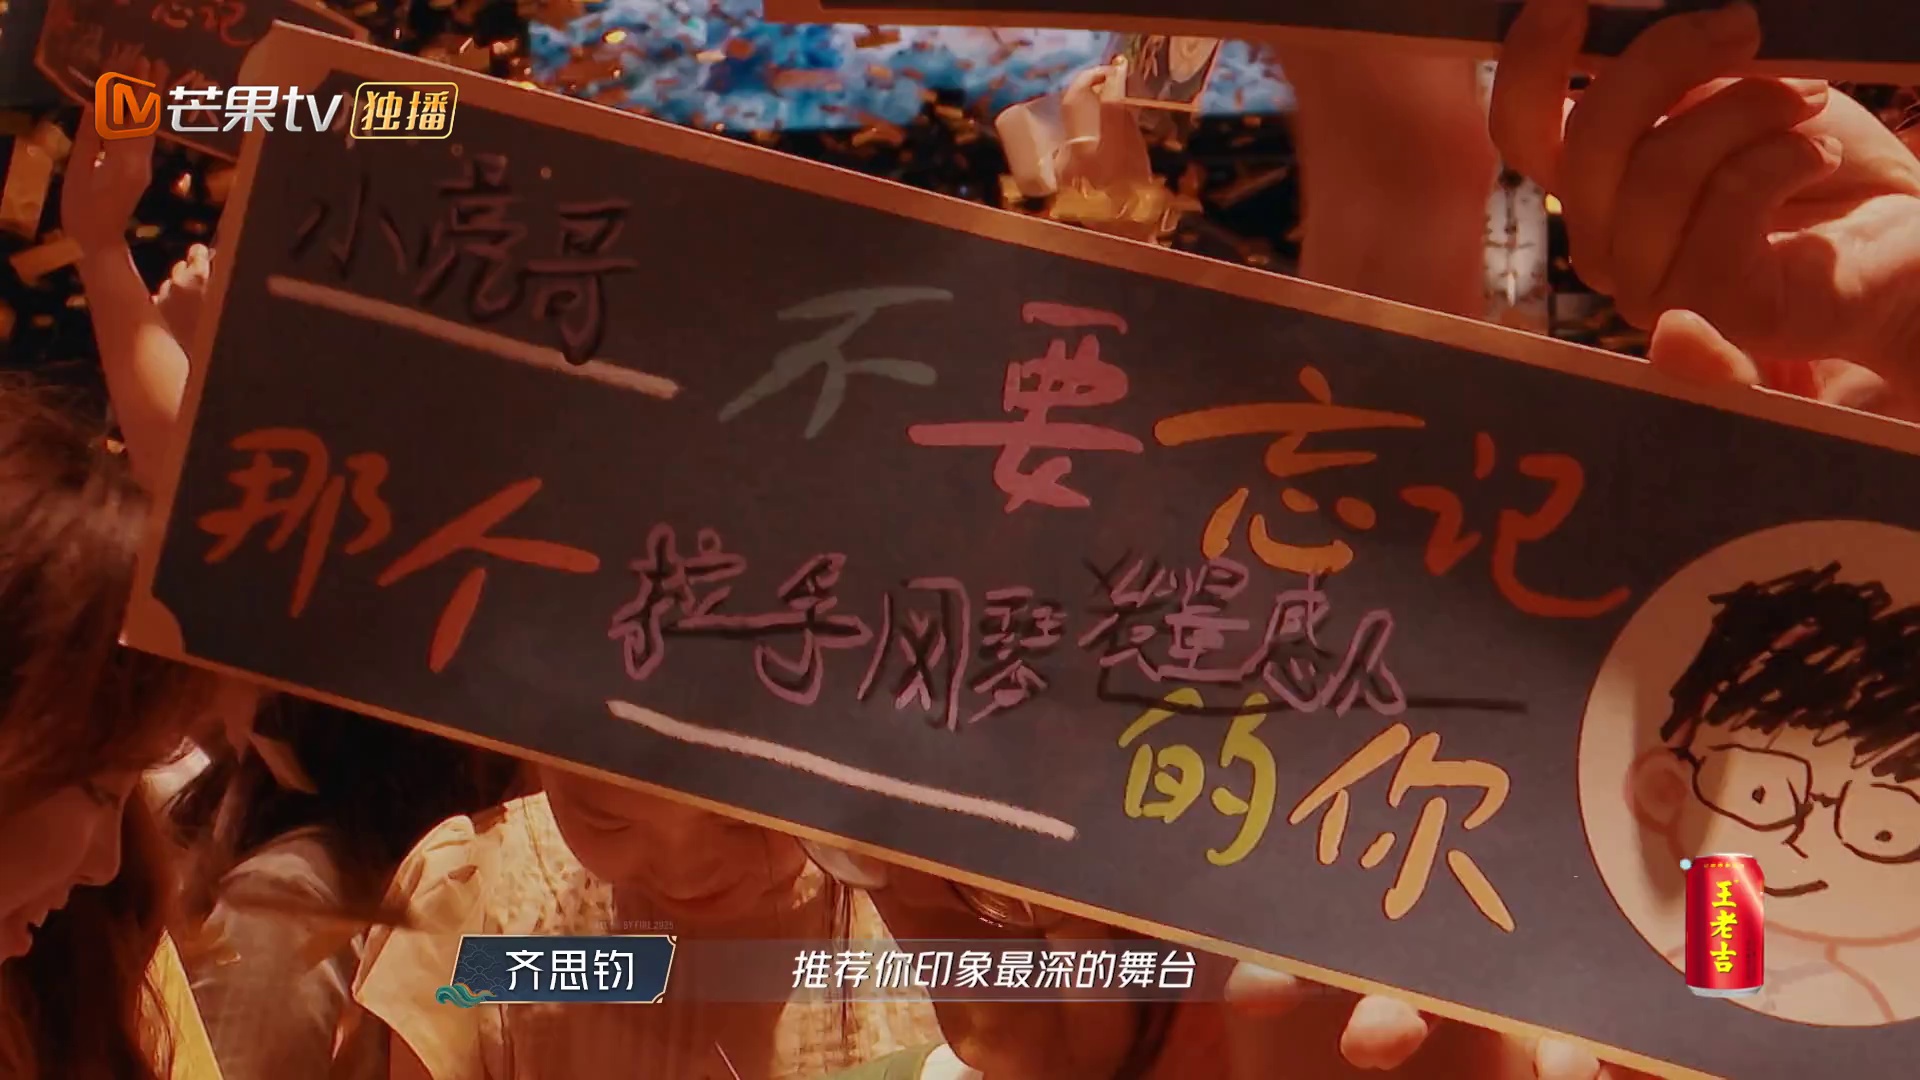 芒果tv 独播
小亮哥
不要忘记
那个
拉手风琴
感人
的你
王老吉
齐思钧
推荐你印象最深的舞台